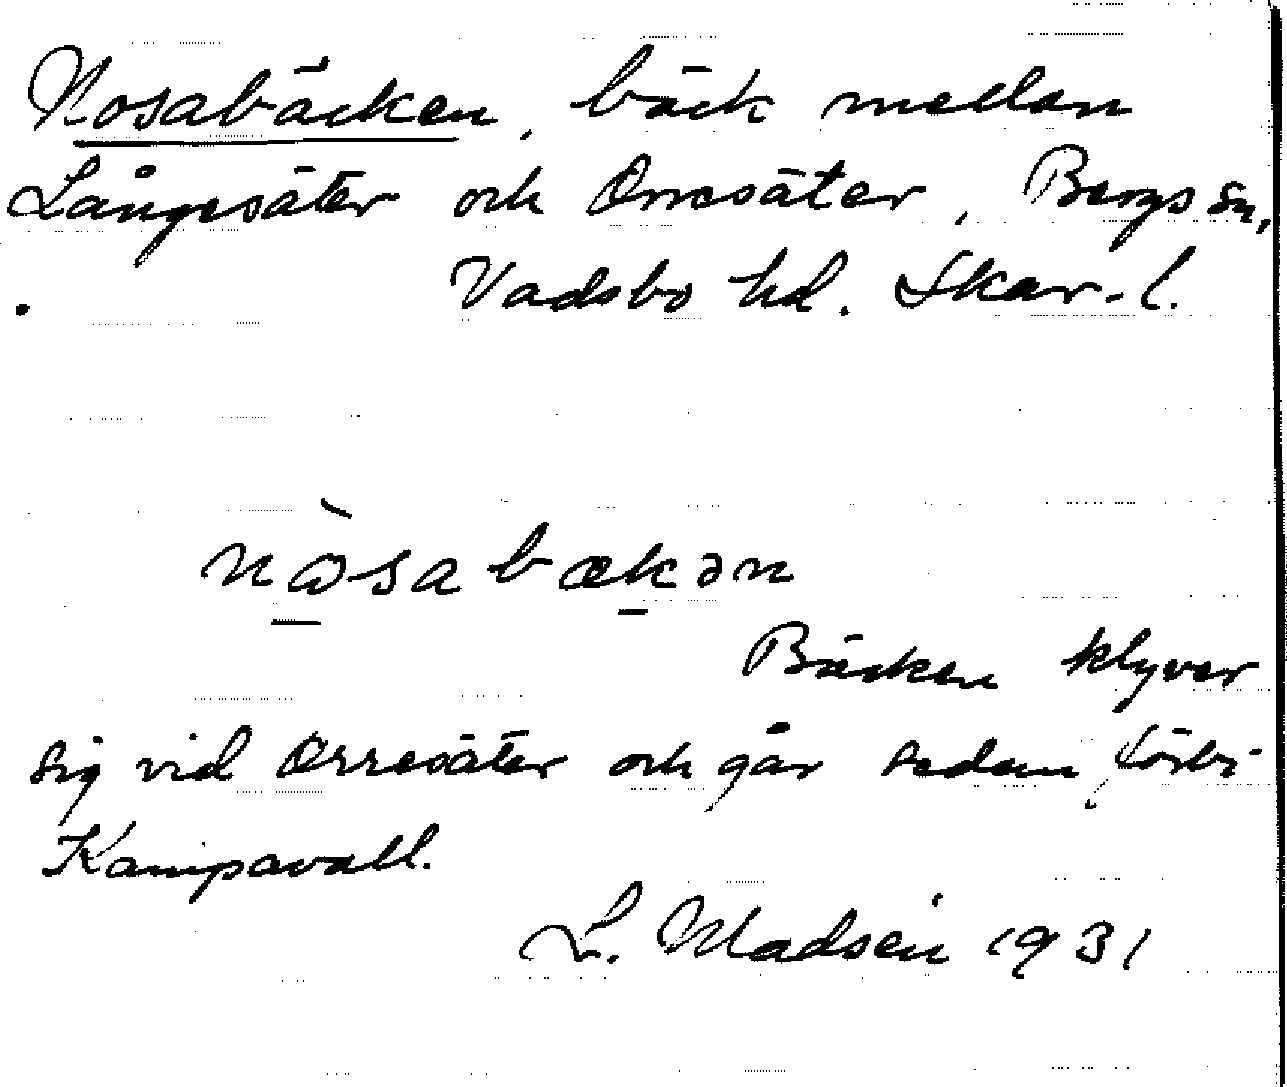 Nosabäcken, bäck mellan
Långesäter och Orresäter, Bergs sn,
Vadsbo hd. Skar. l.
nåsabækən
Bäcken klyver
sig vid Orresäter och går sedan förbi
Kampavall.
L. Madsén 1931